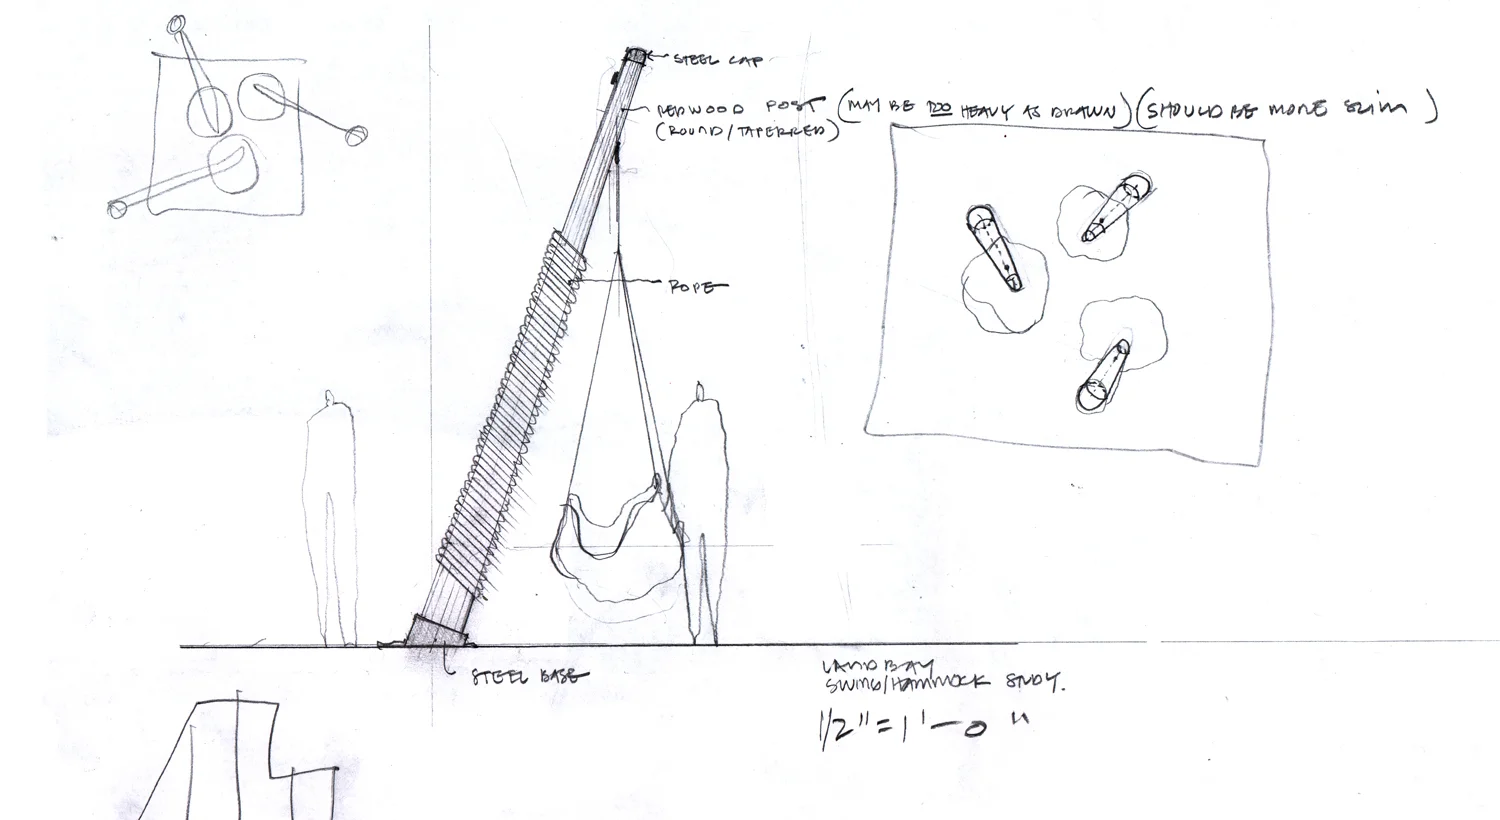 STEEL CAP
REDWOOD POST (MAY BE TOO HEAVY AS DRAWN) (SHOULD BE MORE SLIM)
(ROUND/TAPERRED)
ROPE
STEEL BASE
LAND BAY
SWING/HAMMOCK STUDY.
1/2" = 1'-0"